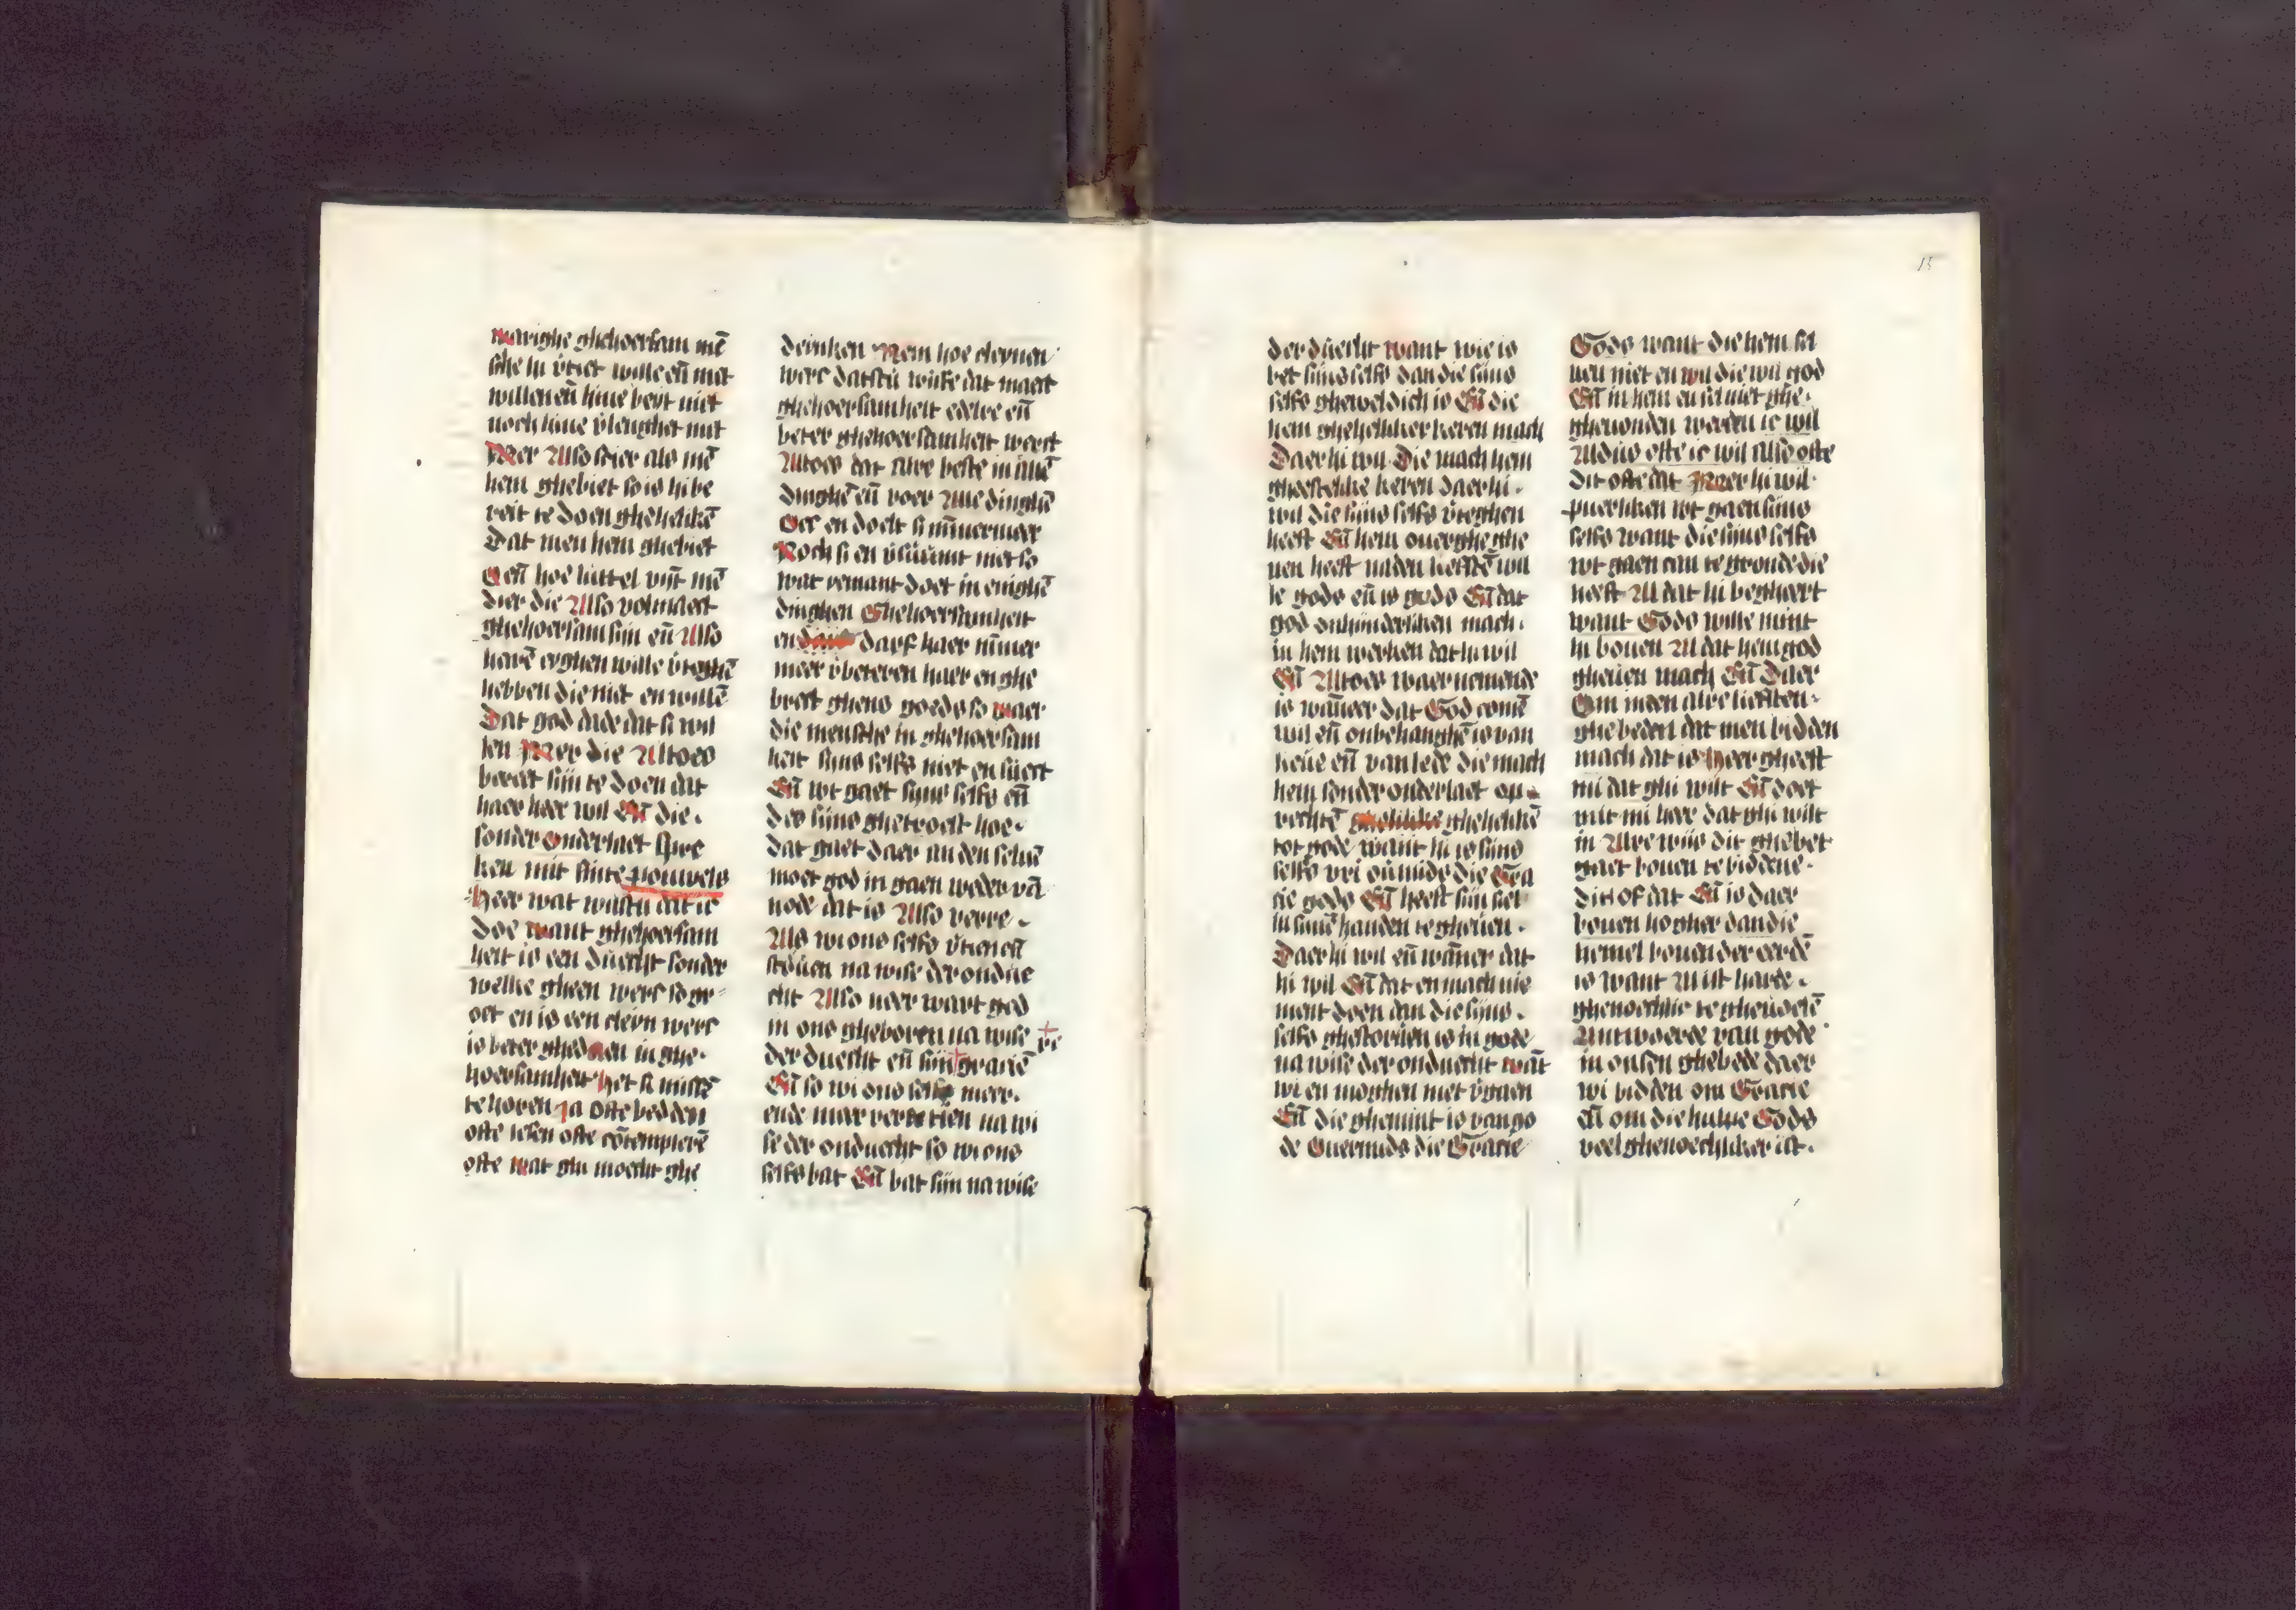 warighe ghehoersam mē
sche hi v̄tiet wille eñ met
willen eñ hine beyt niet
noch hine v̄lenghet niet
Mer Also schier als mē
hem ghebiet so is hi be
reit te doen ghehelikē
Dat men hem ghebiet
Oeñ hoe luttel vijt mē
dier die Also volmaect
ghehoersam sijn eñ Also
harē eyghen wille v̄teghē
hebben die niet en willē
Dat god dade dat si wil
len Mer die Altoes
bereet sijn te doen dat
haer heer wil Eñ die.
sonder onderlaet spre
ken mit sinte pouwels
Heer wat wiltu dat ic
doe want ghehoersam
heit is een duecht sonder
welke gheen werc so gr
oet en is een cleyn werc
is beter ghedaen in ghe.
hoersamheit het si missē
te horen Ja ofte bedden
ofte lesen ofte cōtemplerē
ofte wat ghi moecht ghe
deinken Nem hoe cleynen
werc dattu wilte dat maect
ghehoersamheit edelre eñ
beter ghehoersamheit werct
Altoes dat alre beste in allē
dinghē eñ voer Alle dinghē
Oec en doelt si nūmermeer
Noch si en v̄suūmt niet so
wat yemant doet in enighē
dinghen Ghehoersamheit
en darf haer nūmer
meer v̄beteren haer en ghe
brect gheens goeds so waer
die mensche in ghehoersam
heit sijns selfs niet en suect
Eñ wt gaet sijns selfs eñ
des sijns ghetroest hoe.
dat gaet daer an den seluē
moet god in gaen weder vā
node dat is Also verre.
Als wi ons selfs v̄tien eñ
steruen na wise der ondue
cht Also veer wart god
in ons gheboren na wise
der duecht eñ sijn gracie
Eñ so wi ons selfs meer.
ende mar vertien na wi
se der onduecht so wi ons
selfs bat Eñ bat sijn na wise
der duecht want wie is
bet sijns selfs dan die sijns
selfs gheweldich is Eñ die
hem ghehelliker keren mach
Daer hi wil Die mach hem
gheestelike keren daer hi.
wil die sijns selfs v̄teghen
heeft Eñ hem ouerghe ghe
uen heeft na den liefstē wil
le gods eñ is gods Eñ dat
god onhinderliken mach.
in hem werken dat hi wil
Eñ Altoes waer nemende
is wāneer dat God comē
wil eñ onbehanghē is van
lieue eñ van lede die mach
hem sonder onderlaet op
rechtē ghehelikē
tot gode want hi is sijns
selfs vri ouermids die Gra
cie gods Eñ heeft sijn siel
in sinē handen te gheuen.
Daer hi wil eñ wāner dat
hi wil Eñ dat en mach nie
ment doen dan die sijns.
selfs ghestoruen is in gode
na wise der onduecht wāt
wi en moghen niet v̄gaen
Eñ die ghemint is van go
de Ouermids die Gracie
15
Gods want die hem sel
uen niet en wil die wil god
Eñ in hem en sel niet ghe.
gheuonden werden ic wil
Aldus ofte ic wil Also ofte
dit ofte dat Mer hi wil
puerliken wt gaen sijns
selfs want die sijns selfs
wt gaen can te gronde die
heeft Al dat hi begheert
want Gods wille mint
hi bouen Al dat hem god
gheuen mach Eñ Daer
Om is een alre liefsten.
ghebeden dat men bidden
mach dat is heer gheeft
mi dat ghi wilt Eñ doet
mit mi heer dat ghi wilt
in Alre wijs dit ghebet
gaet bouen te biddene.
dit of dat Eñ is daer
bouen hogher dan die
hemel bouen der eerdē
is want Al ist harde.
ghenoechlic te gheuoelē
Antwoerde van gode
in onsen ghebede daer
wi bidden om Gracie
eñ om die hulpe Gods
veel ghenoechliker ist.